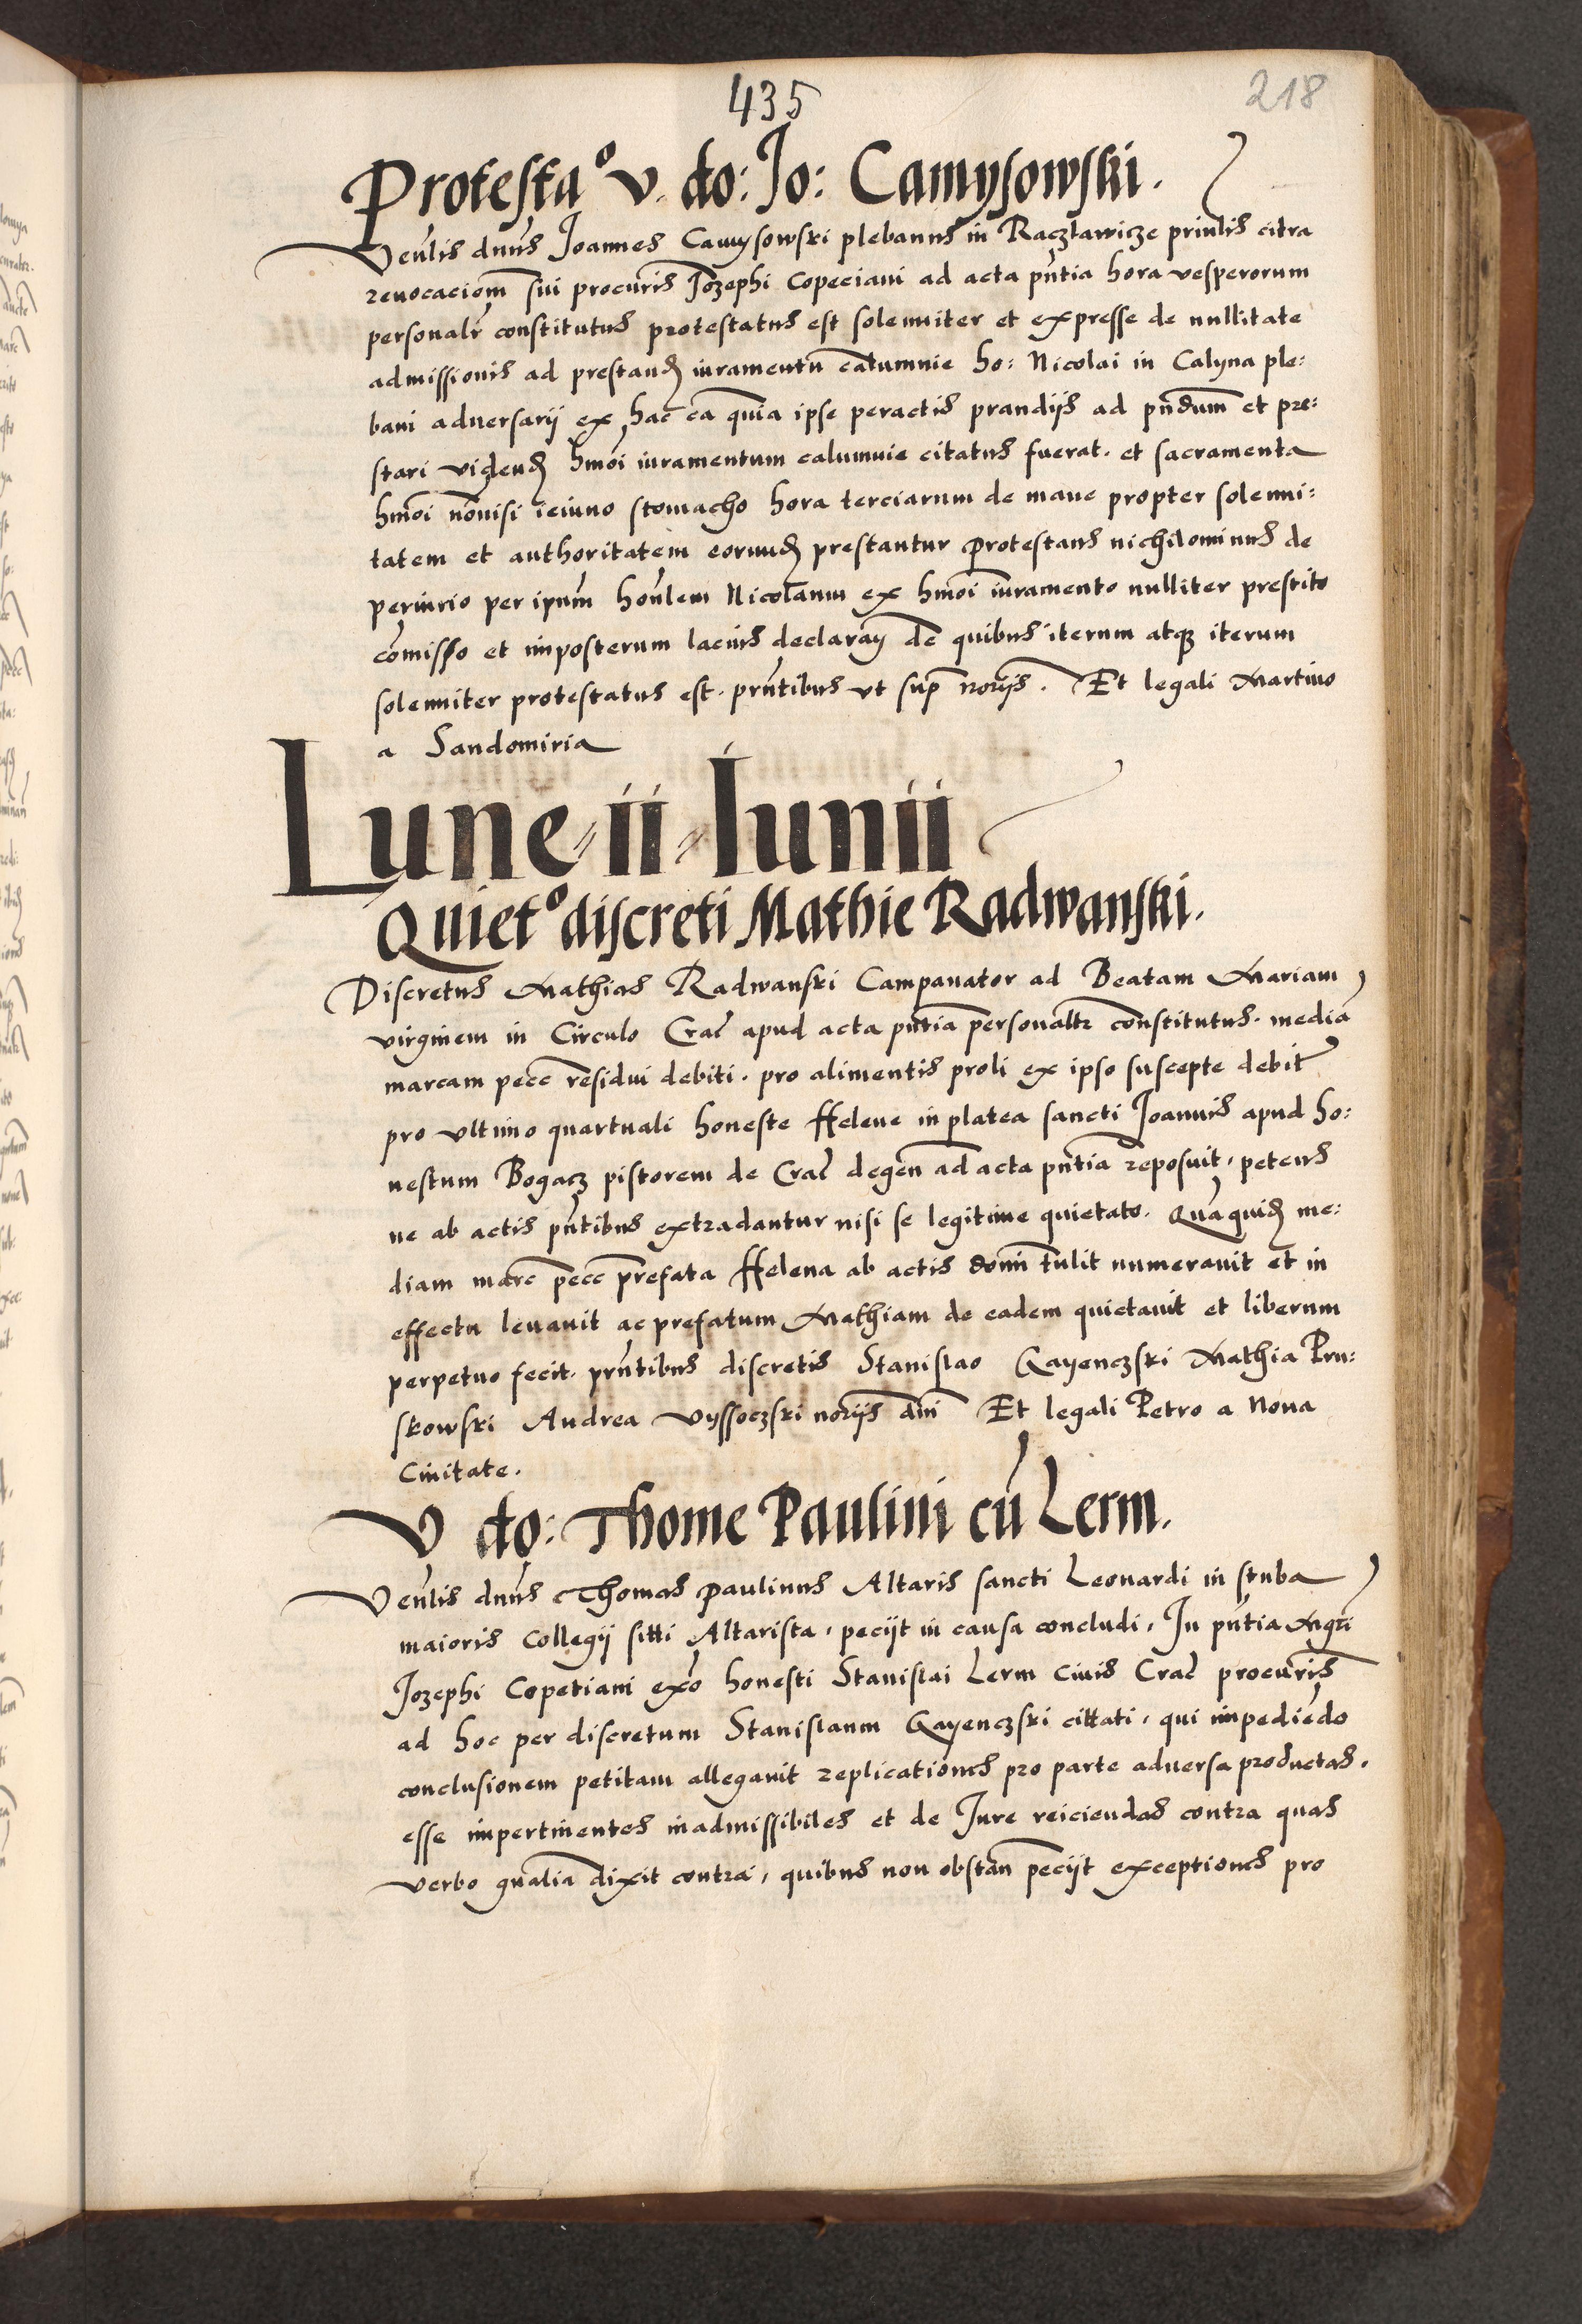 435
218
Protesta° v. do: Jo: Camysowski.
Venlis dnus Joannes Camysowski plebanus in Raczlawicze prinlis citra
revocaciom sui procuris Jozephi Copeciani ad acta pntia hora vesperorum
personalr constitutus protestatus est solenniter et expresse de nullitate
admissionis ad prestand iuramentu calumnie ho: Nicolai in Calyna ple:
bani adversarij ex hac ca quia ipse peractis prandijs ad pndum et pre:
stari vidend hmoi iuramentum calumnie citatus fuerat. et sacramenta
hmoi nonisi ieiuno stomacho hora terciarum de mane propter solenni:
tatem et authoritatem eorund prestantur Protestans nichilominus de
periurio per ipum honlem Nicolaum ex hmoi iuramento nulliter prestito
comisso et imposterum lacius declaran de quibus iterum atq iterum
solenniter protestatus est. prntibus vt sup norijs. Et legali Martino
a Sandomiria
Lune ii Junii
Quiet° discreti Mathie Radwanski.
Discretus Mathias Radwanski Campanator ad Beatam Mariam
virginem in Circulo Crac apud acta pntia personaltr constitutus. media
marcam pecc residui debiti. pro alimentis proli ex ipso suscepte debit
pro vltimo quartuali honeste Helene in platea sancti Joannis apud ho:
nestum Bogacz pistorem de Crac degen ad acta pntia reposuit, petens
ne ab actis pntibus extradantur nisi se legitime quietato. Quaquid me:
diam marc pecc prefata Helena ab actis domi tulit numeravit et in
effectu levavit ac prefatum Mathiam de eadem quietavit et liberum
perpetuo fecit. prntibus discretis Stanislao Gayenczski Mathia Pru:
skowski Andrea Vyssoczski norijs dni Et legali Petro a Nova
Civitate.
V do: Thome Paulini cu Lerm.
Venlis dnus Thomas Paulinus Altaris sancti Leonardi in stuba
maioris Collegij sitti Altarista, pecijt in causa concludi, In pntia Mgri
Jozephi Copetiani exo honesti Stanislai Lerm Civis Crac procuris
ad hoc per discretum Stanislaum Gayenczski cittati, qui impediedo
conclusionem petitam allegavit replicationes pro parte adversa productas.
esse impertinentes inadmissibiles et de Jure reiciendas contra quas
verbo gnalia dixit contra, quibus non obstan pecijt exceptiones pro